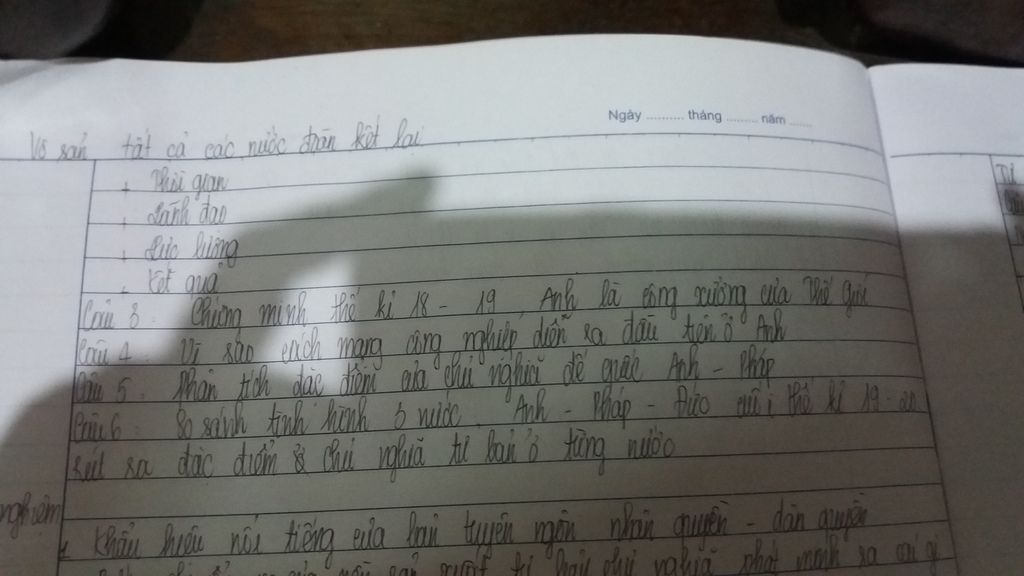 Ngày .......... tháng ........ năm ......
Vô sản tất cả các nước đoàn kết lại
+ Thời gian
+ Lãnh đạo
+ Lực lượng
+ Kết quả
Câu 3: Chứng minh thế kỉ 18 - 19 Anh là công xưởng của thế giới
Câu 4: Vì sao cách mạng công nghiệp diễn ra đầu tiên ở Anh
Câu 5: Phân tích đặc điểm của chủ nghĩa đế quốc Anh - Pháp
Câu 6: So sánh tình hình 3 nước Anh - Pháp - Đức cuối thế kỉ 19 - 20
rút ra đặc điểm chủ nghĩa tư bản ở từng nước
nghiệm
Khẩu hiệu nổi tiếng của bản tuyên ngôn nhân quyền - dân quyền